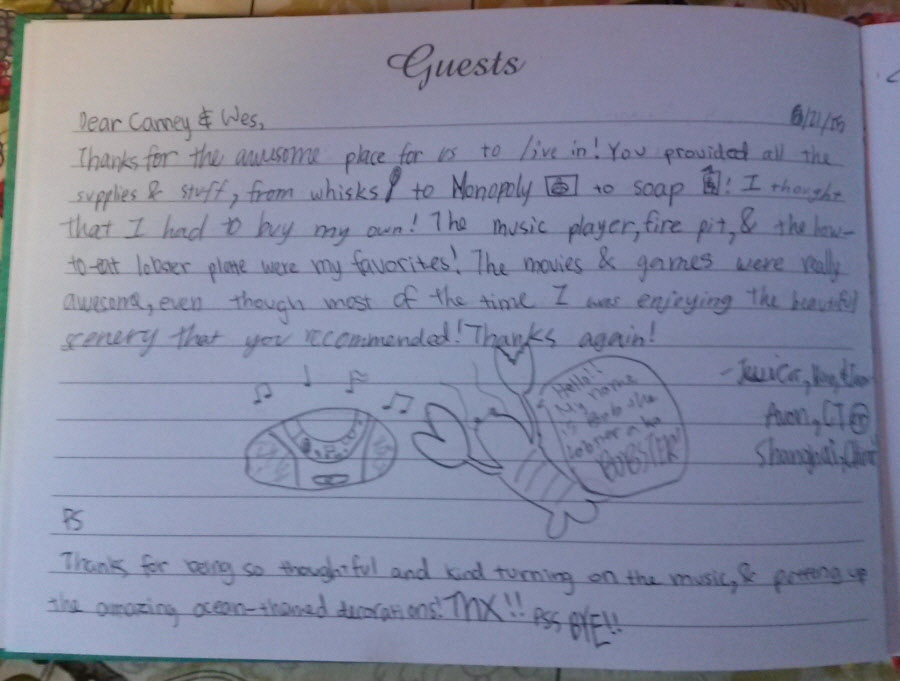 Guests
Dear Canney & Wes,
Thanks for the awesome place for us to live in! You provided all the
supplies & stuff, from whisks to Monopoly to soap ! I thought
that I had to buy my own! The music player, fire pit, & the how-
to-eat lobser plate were my favorites! The movies & games were really
awesome, even though most of the time I was enjoying the beautiful
scenery that you reccommended! Thanks again!
Hello!!
My name
is Bob the
Lobser a.ka
BOBSTER!
- Jessica,
Avon, CT
Shanghai, China
PS
Thanks for being so thoughtful and kind turning on the music, & putting up
the amazing ocean-themed decorations! TNX!! PSS BYE!!